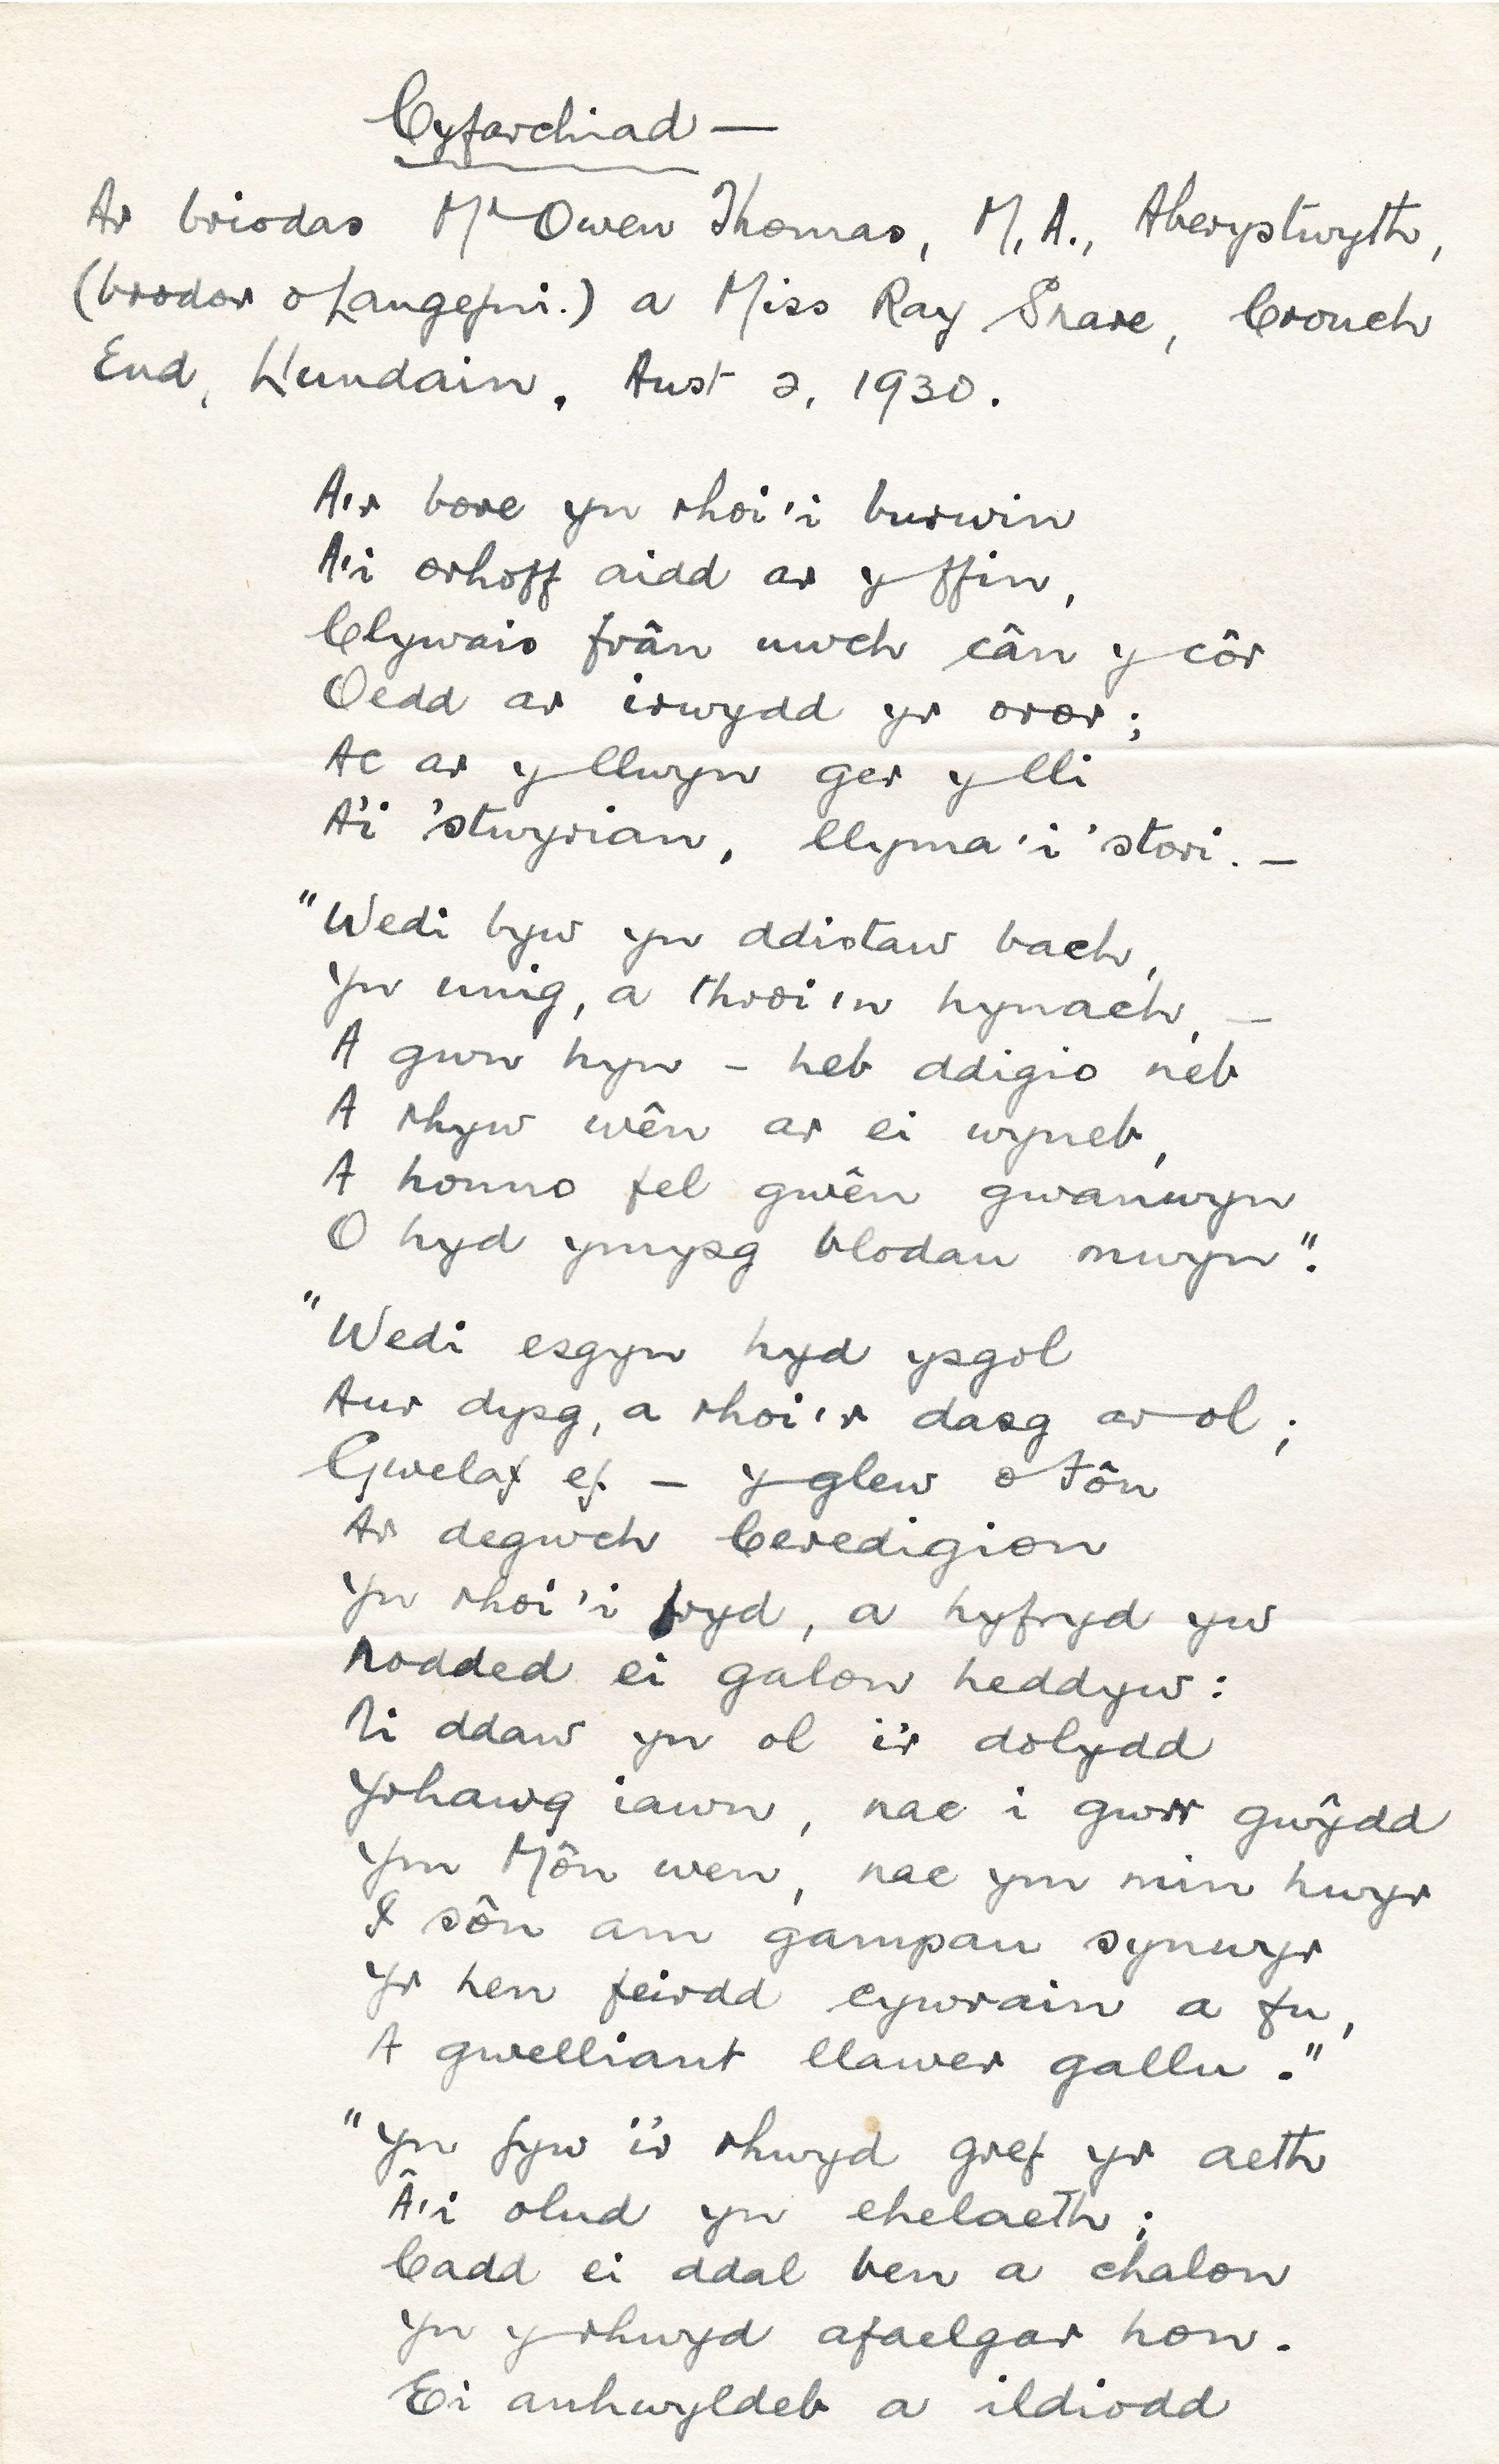 Cyfarchiad —
Ar briodas Mr Owen Thomas, M.A., Aberystwyth,
(brodor o Langefni.) a Miss Ray Snare, Crouch
End, Llundain, Awst 2, 1930.
A'r bore yn rhoi'i burwin
A'i orhoff aidd ar y ffin,
Clywais frân uwch cân y côr
Oedd ar irwydd yr oror;
Ac ar y llwyn ger y lli
A'i 'stwyrian, llyma'i 'stori. —
"Wedi byw yn ddistaw bach,
Yn unig, a throi'n hynach, —
A gwn hyn – heb ddigio neb
A rhyw wên ar ei wyneb,
A honno fel gwên gwanwyn
O hyd ymysg blodau mwyn".
"Wedi esgyn hyd ysgol
Aur dysg, a rhoi'r dasg ar ol;
Gwelaf ef – y glew o Fôn
Ar degwch Ceredigion
Yn rhoi'i fryd, a hyfryd yw
Nodded ei galon heddyw:
Ni ddaw yn ol i'r dolydd
Yrhawg iawn, nac i gwrr gwŷdd
Ym Môn wen, nac ym min hwyr
I sôn am gampau synwyr
Yr hen feirdd cywrain a fu,
A gwelliant llawer gallu."
"Yn fyw i'r rhwyd gref yr aeth
Â'i olud yn ehelaeth;
Cadd ei ddal ben a chalon
Yn y rhwyd afaelgar hon.
Ei anhwyldeb a ildiodd